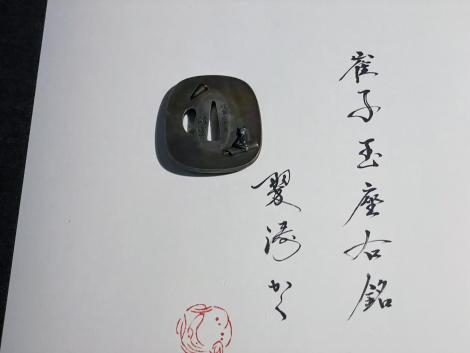 崔子玉座右銘
翠濤かく